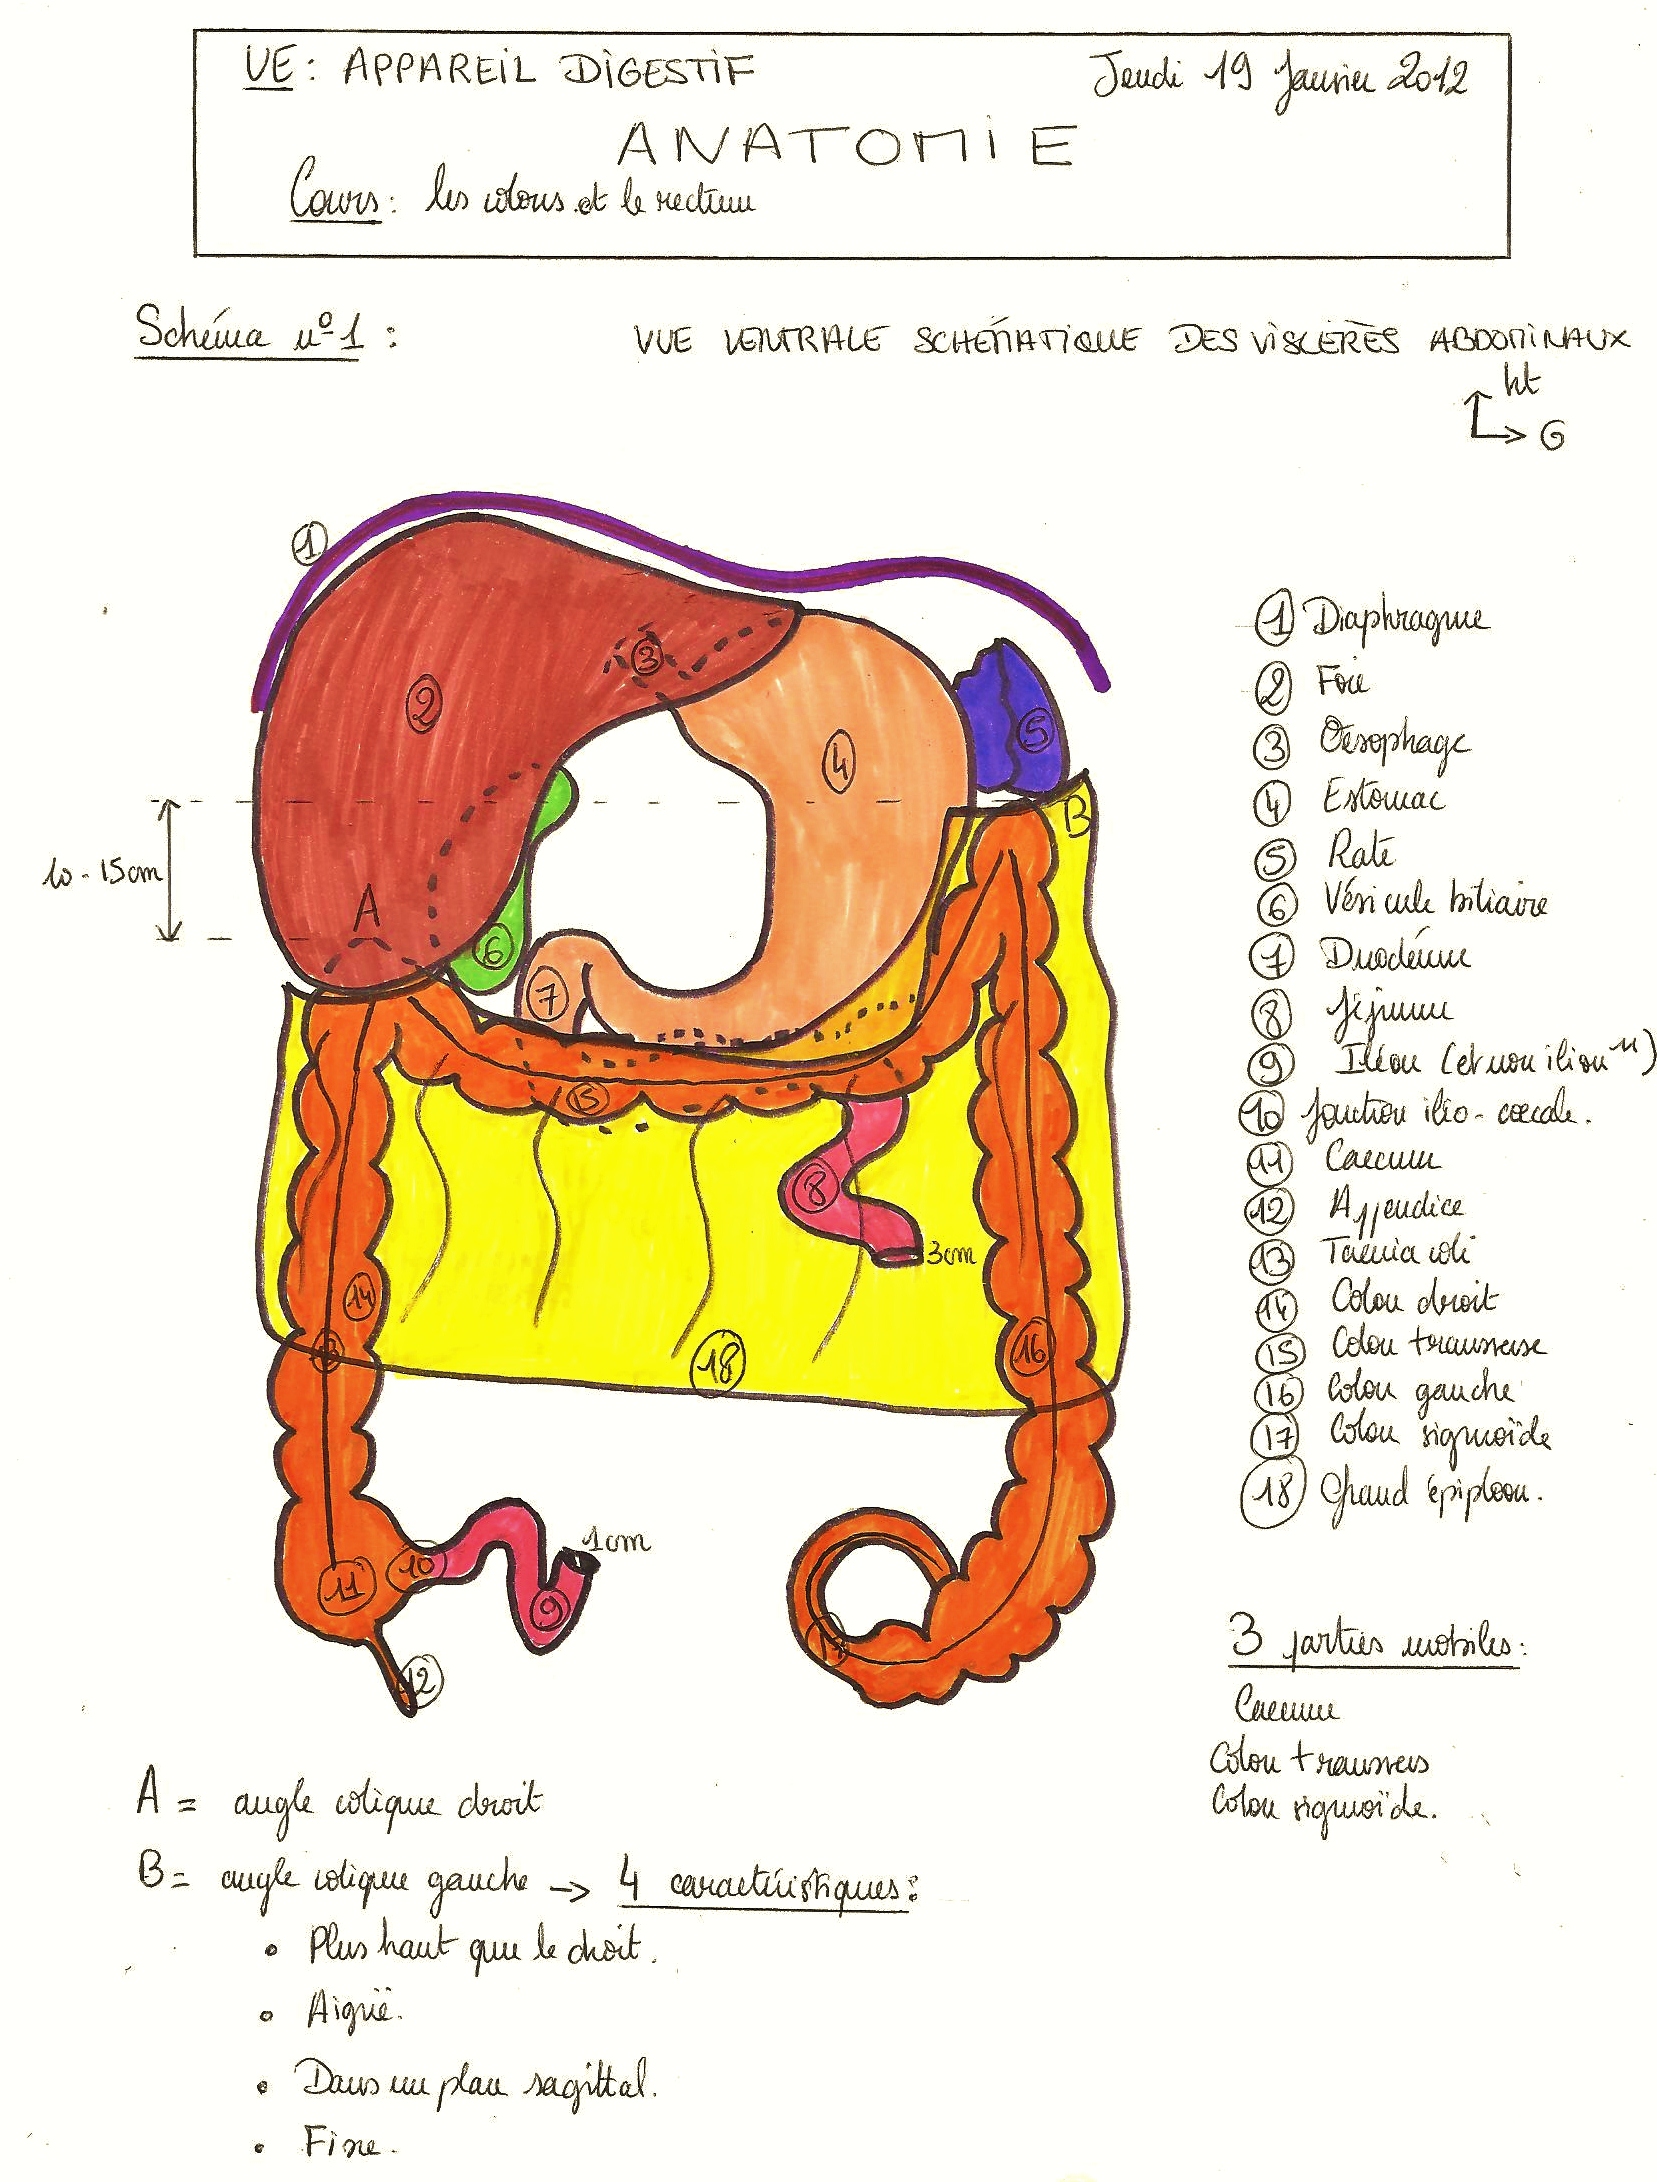 UE: APPAREIL DIGESTIF
Jeudi 19 Janvier 2012
ANATOMIE
Cours: les colons et le rectum
Schéma n°1 :
VUE VENTRALE SCHÉMATIQUE DES VISCÈRES ABDOMINAUX
ht
G
1
2
3
4
5
B
10-15cm
A
6
7
15
8
3cm
14
13
16
18
10
1cm
11
9
17
12
1 Diaphragme
2 Foie
3 Oesophage
4 Estomac
5 Rate
6 Vésicule biliaire
7 Duodénum
8 Jéjunum
9 Iléon (et non ilion !!!)
10 Jonction iléo-cæcale.
11 Caecum
12 Appendice
13 Taenia coli
14 Colon droit
15 Colon transverse
16 Colon gauche
17 Colon sigmoïde
18 Grand épiploon.
3 parties mobiles:
Caecum
Colon transvers
Colon sigmoïde.
A = angle colique droit
B = angle colique gauche → 4 caractéristiques:
• Plus haut que le droit.
• Aiguë.
• Dans un plan sagittal.
• Fixe.